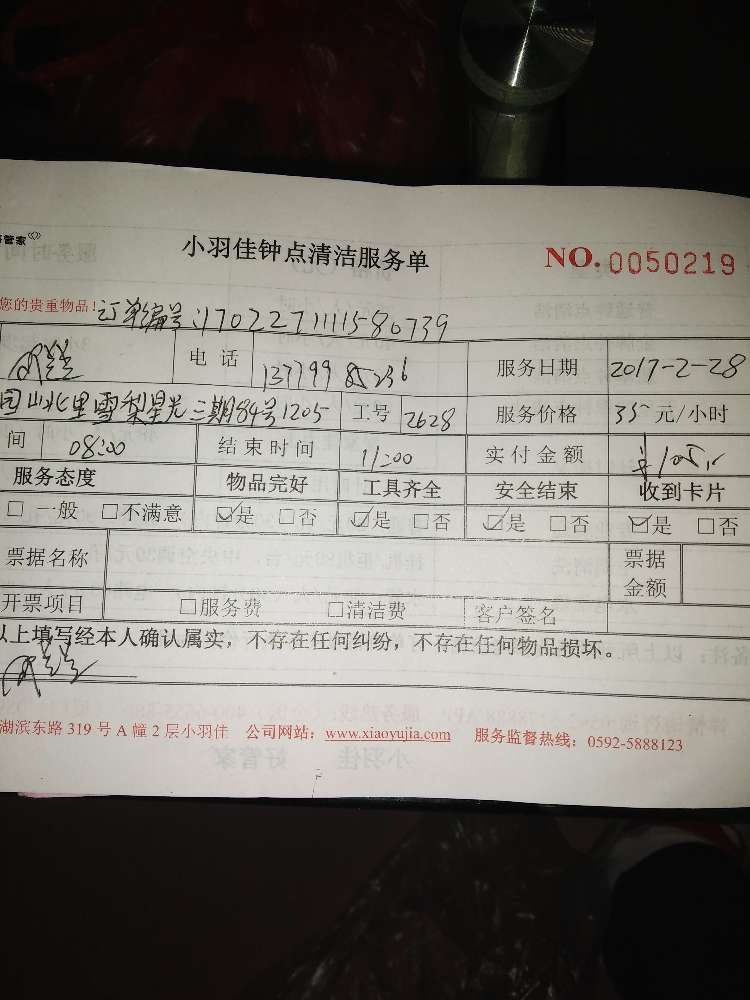 管家
小羽佳钟点清洁服务单
NO. 0050219
您的贵重物品!订单编号:
电话 服务日期 2017-2-28
山北里雪梨星光三期84号1205 工号 2628 服务价格 35元/小时
间 08:00 结束时间 11:00 实付金额
服务态度 物品完好 工具齐全 安全结束 收到卡片
□ 一般 □不满意 ☑是 □否 ☑是 □否 ☑是 □否 ☑是 □否
票据名称 票据金额
开票项目 □服务费 □清洁费 客户签名
以上填写经本人确认属实，不存在任何纠纷，不存在任何物品损坏。
湖滨东路 319 号 A 幢 2 层小羽佳 公司网站：www.xiaoyujia.com 服务监督热线：0592-5888123